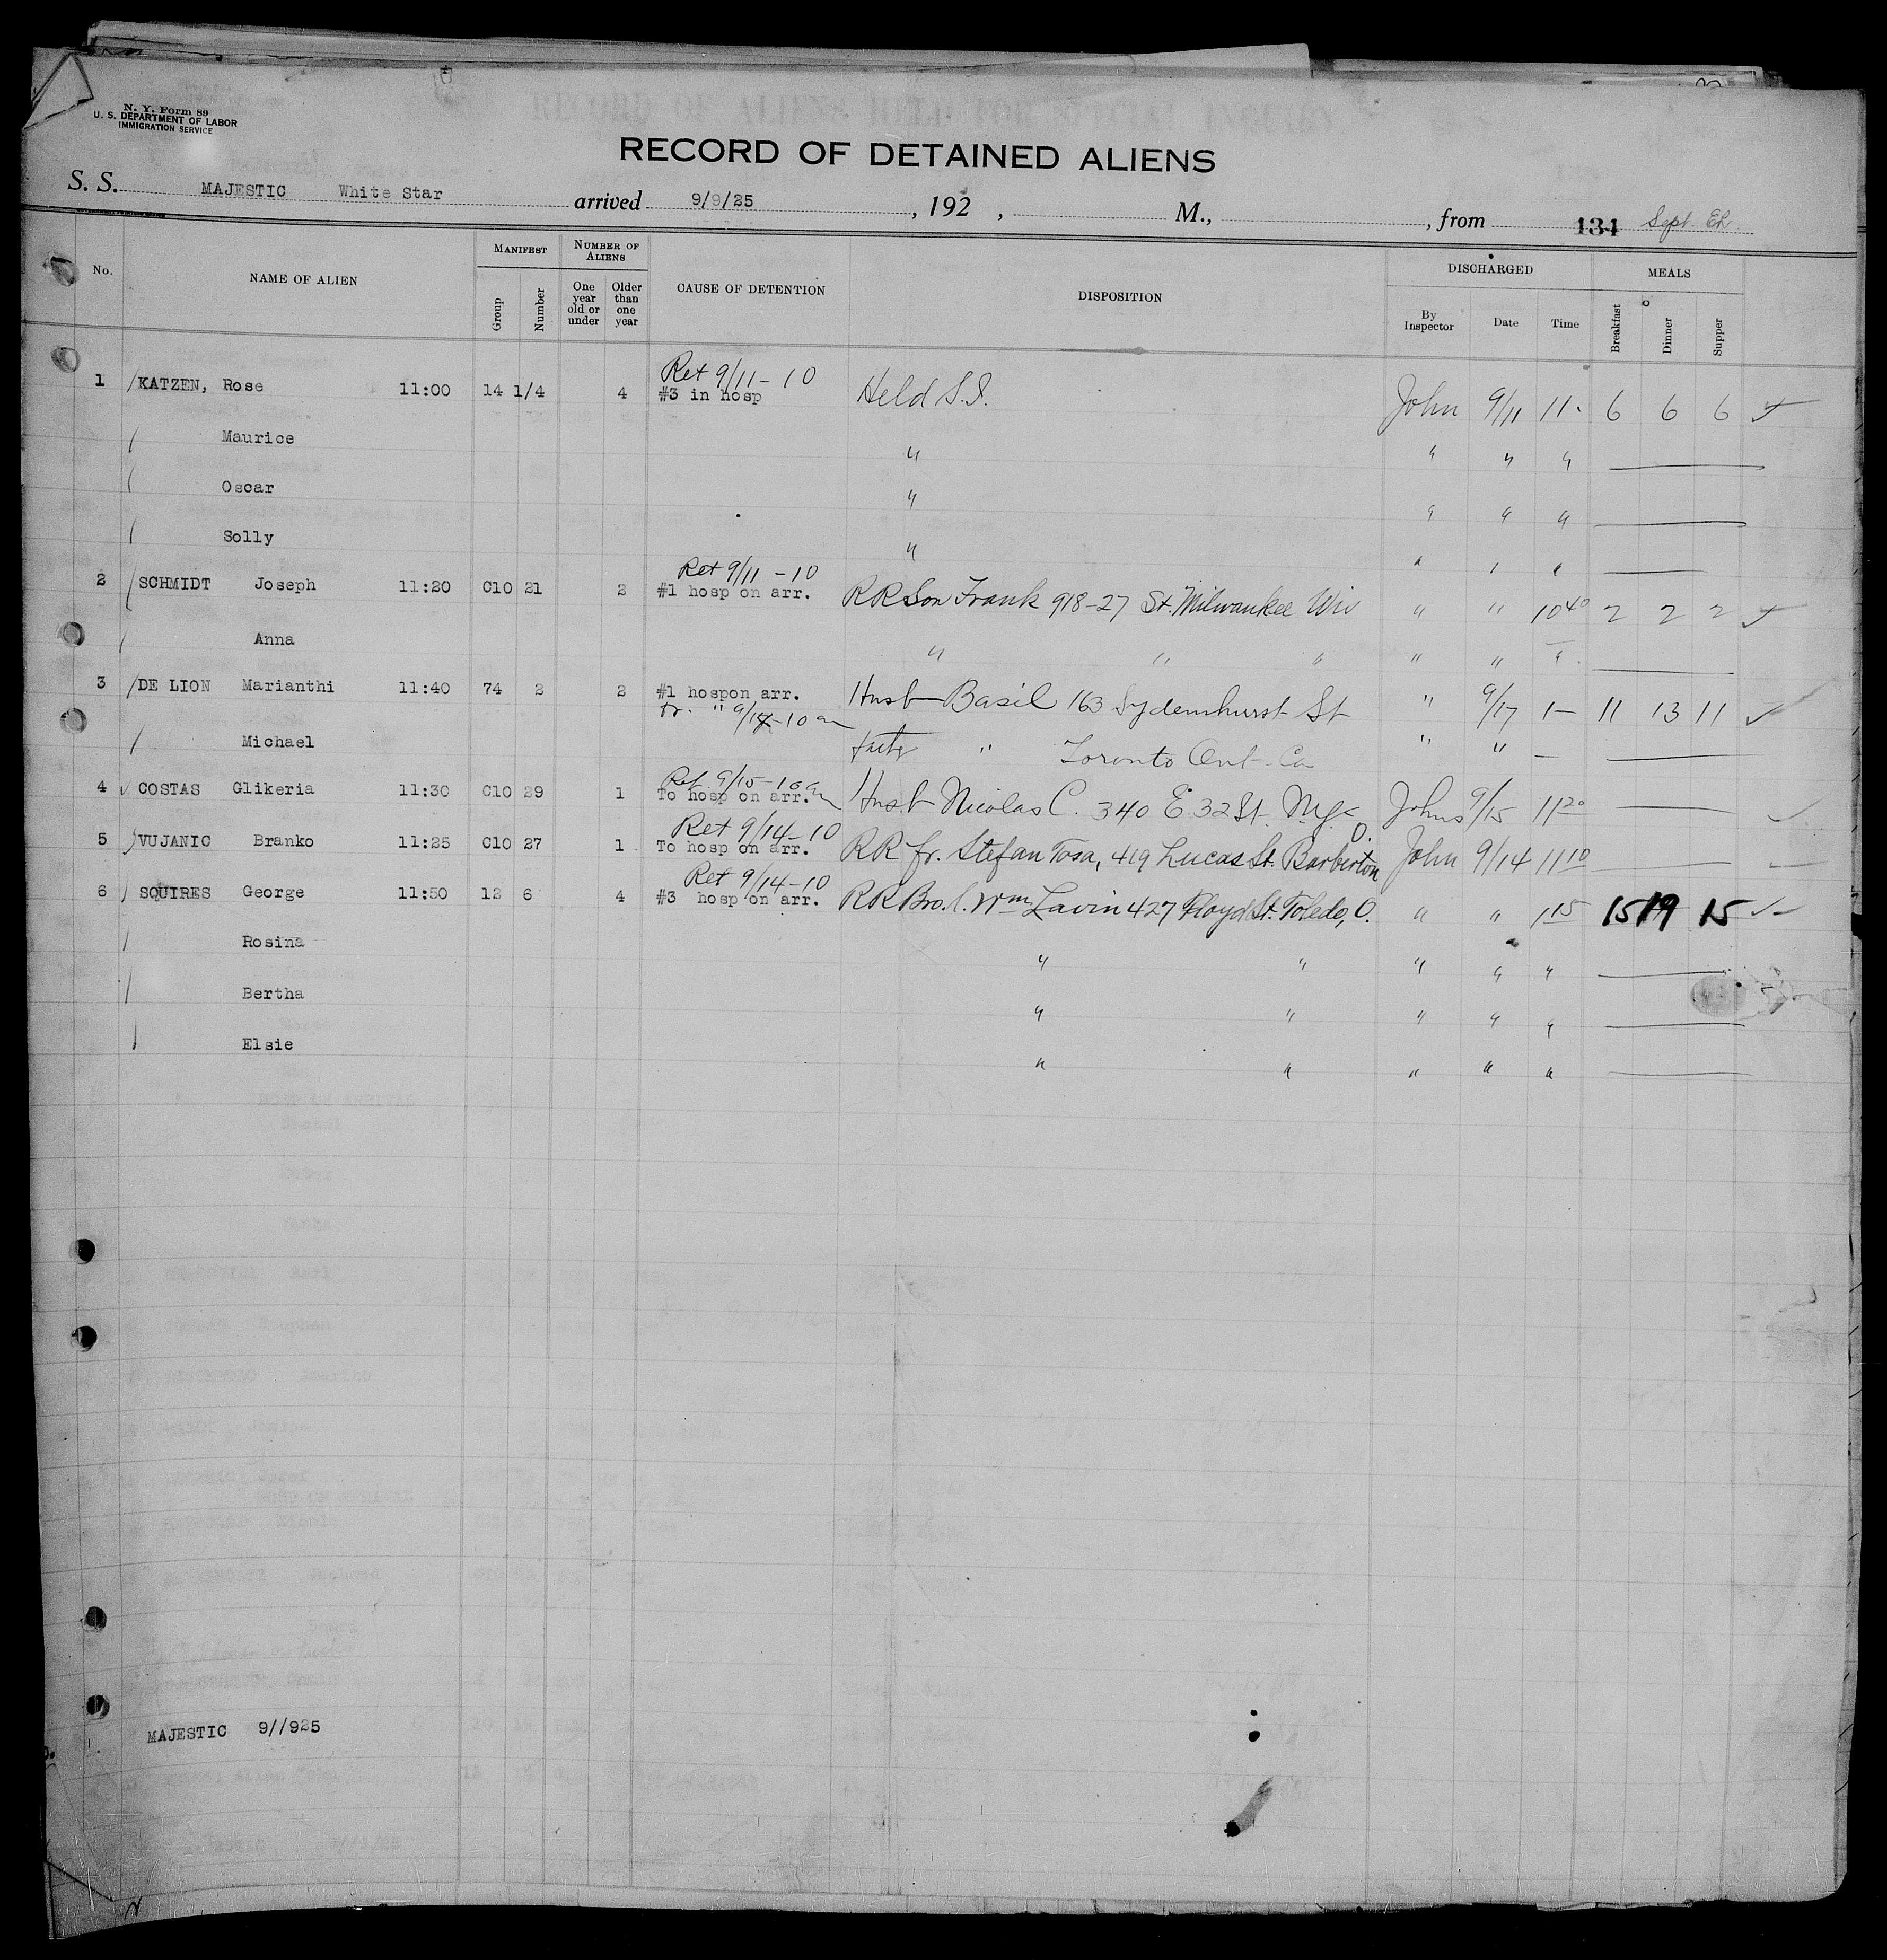 N. Y. Form 89
U. S. DEPARTMENT OF LABOR
IMMIGRATION SERVICE
RECORD OF DETAINED ALIENS
S. S. MAJESTIC White Star arrived 9/9/25, 192 , M., , from 134 Sept.
No. NAME OF ALIEN MANIFEST Group Number NUMBER OF ALIENS One year old or under Older than one year CAUSE OF DETENTION DISPOSITION DISCHARGED By Inspector Date Time MEALS Breakfast Dinner Supper
Ret 9/11-10
1 KATZEN, Rose 11:00 14 1/4 4 #3 in hosp Held S.I. John 9/11 11. 6 6 6
Maurice " " " "
Oscar " " " "
Solly " " " "
Ret 9/11-10
2 SCHMIDT Joseph 11:20 C10 21 2 #1 hosp on arr. RR Son Frank 918-27 St. Milwaukee Wis " " 10 40 2 2 2
Anna " " " " " "
3 DE LION Marianthi 11:40 74 2 2 #1 hospon arr. Husb Basil 163 Sydemhurst St " 9/17 1- 11 13 11
" 9/14-10 am
Michael " Toronto Ont. Ca " " -
Ret 9/15-10 am
4 COSTAS Glikeria 11:30 C10 29 1 To hosp on arr. Husb Nicolas C. 340 E 32 St. N.Y.C. Johns 9/15 11 20
Ret 9/14-10
5 VUJANIC Branko 11:25 C10 27 1 To hosp on arr. RR fr. Stefan Tosa, 419 Lucas St. Barberton O. John 9/14 11 10
Ret 9/14-10
6 SQUIRES George 11:50 12 6 4 #3 hosp on arr. RR Bro. l. Wm Lavin 427 Floyd St. Toledo, O. " " 1 15 15 19 15
Rosina " " " " "
Bertha " " " " "
Elsie " " " " "
MAJESTIC 9//925